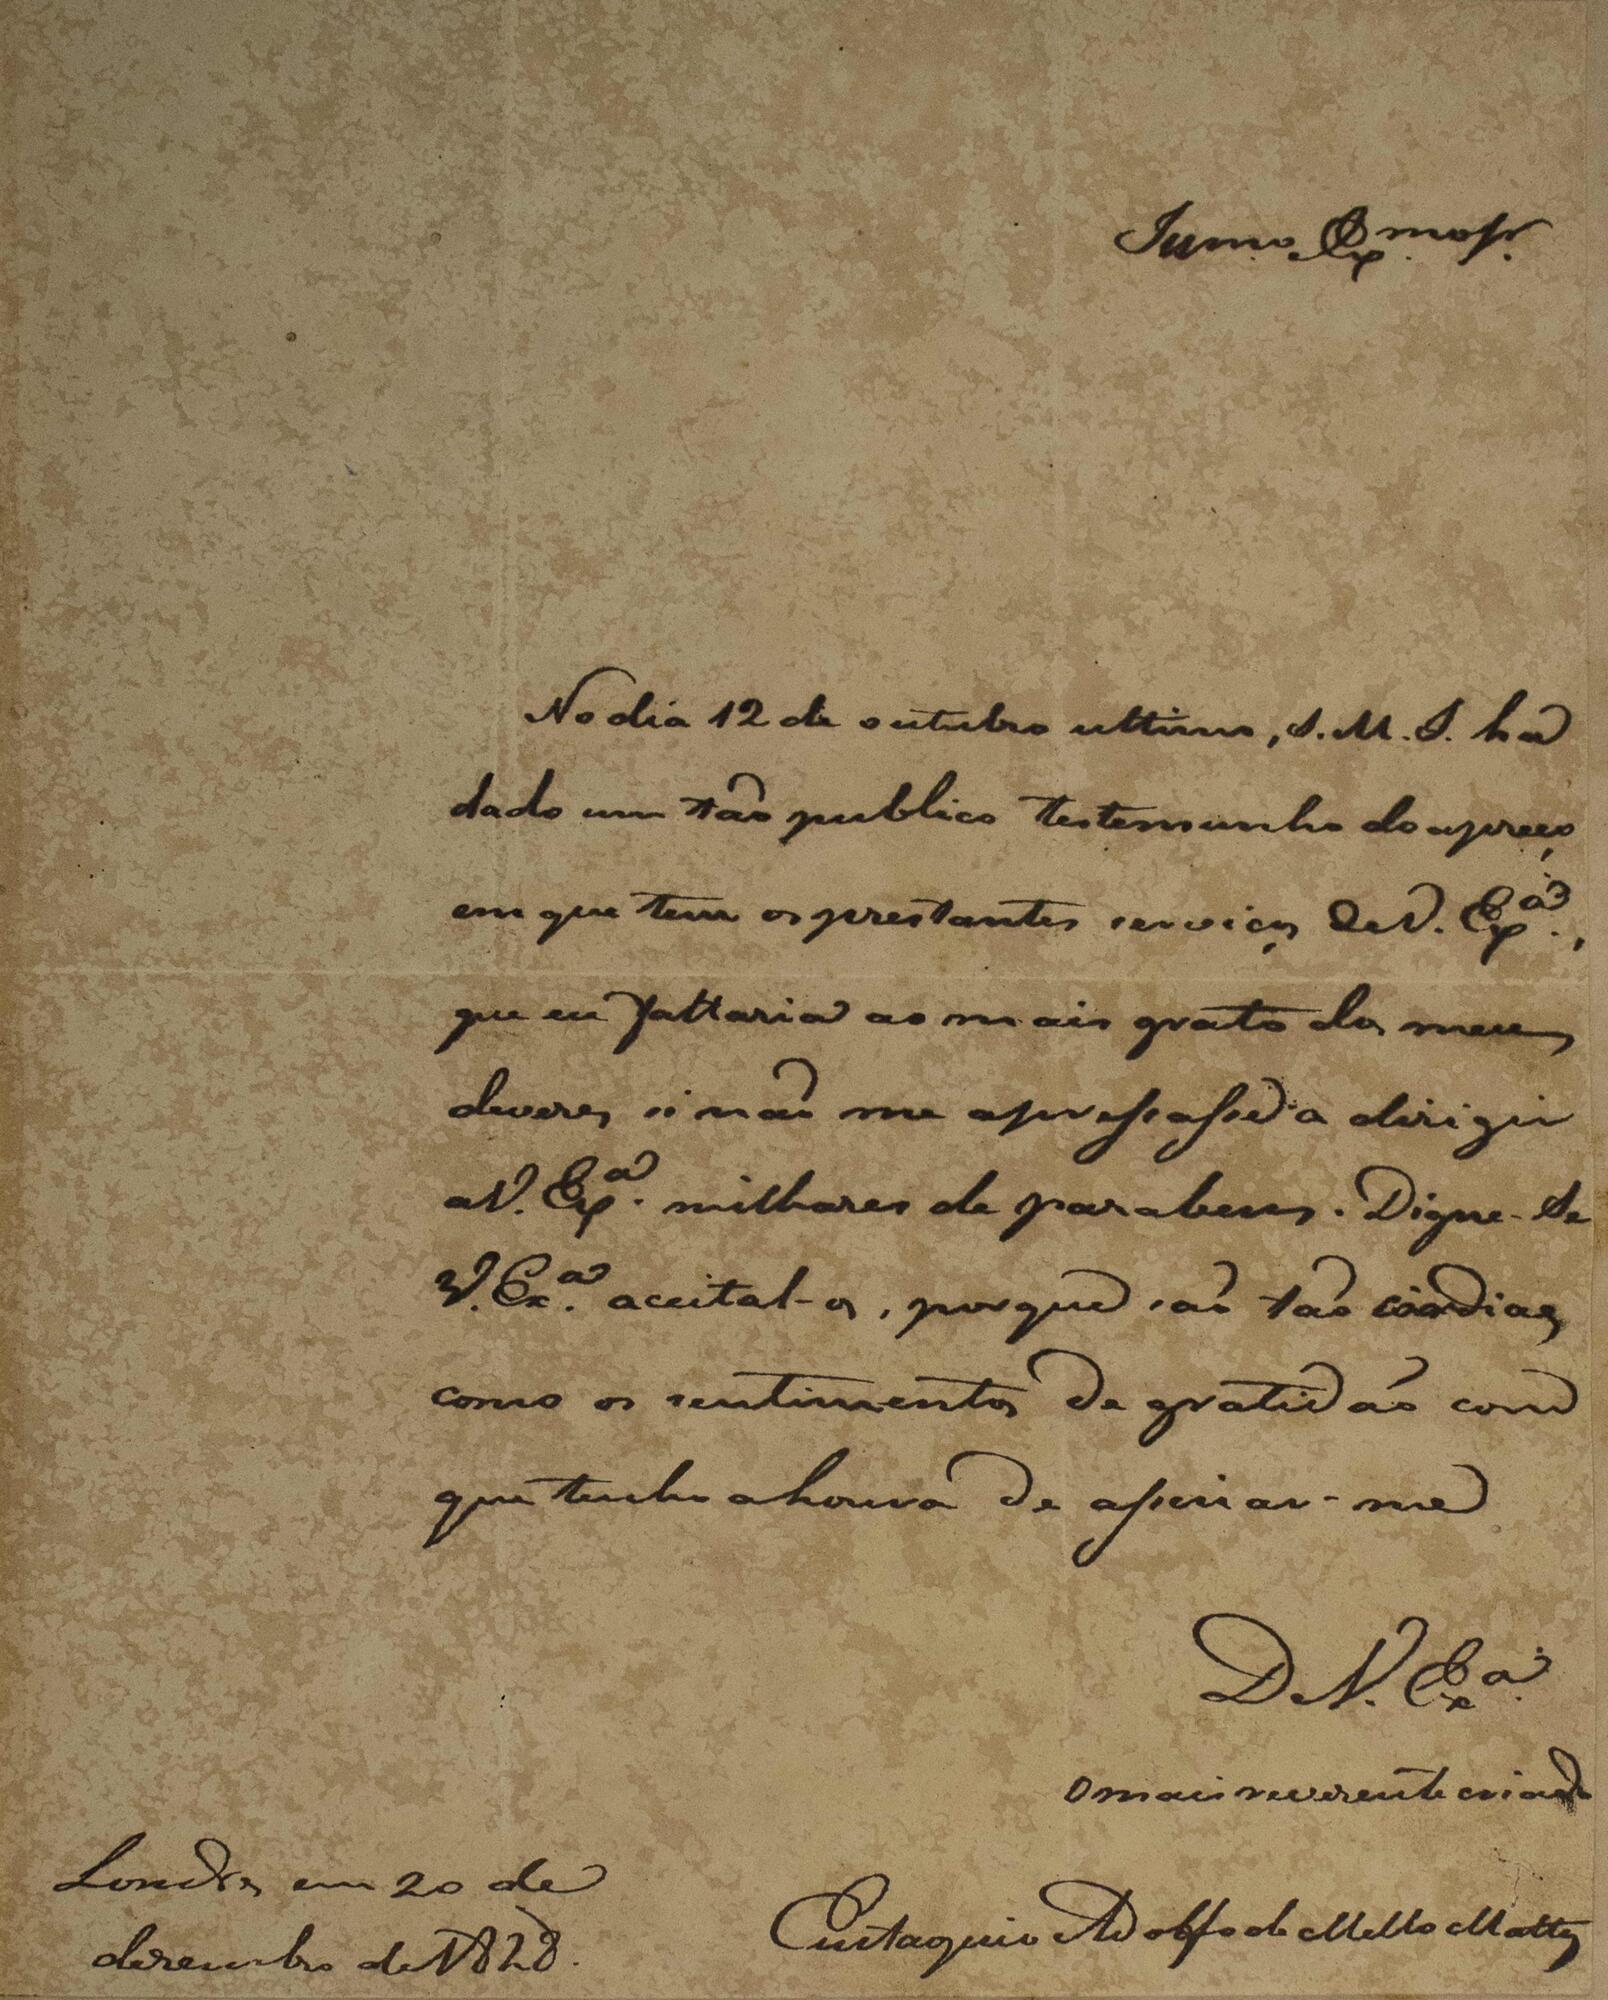 Illmo. Exmo. Sr.
No dia 12 de outubro ultimo, S. M. I. ha
dado um tão publico testemunho do apreço,
em que tem os prestantes serviços de V. Exª.,
que eu faltaria ao mais grato dos meus
deveres si não me apressasse a dirigir
a V. Exª. milhares de parabens. Digne-se
V. Exª. aceital-os, porque são tão cordiaes
como os sentimentos de gratidão com
que tenho a honra de assinar-me
De V. Exª.
O mais reverente criado
Eustaquio Adolfo de Mello Mattos
Londres em 20 de
dezembro de 1828.